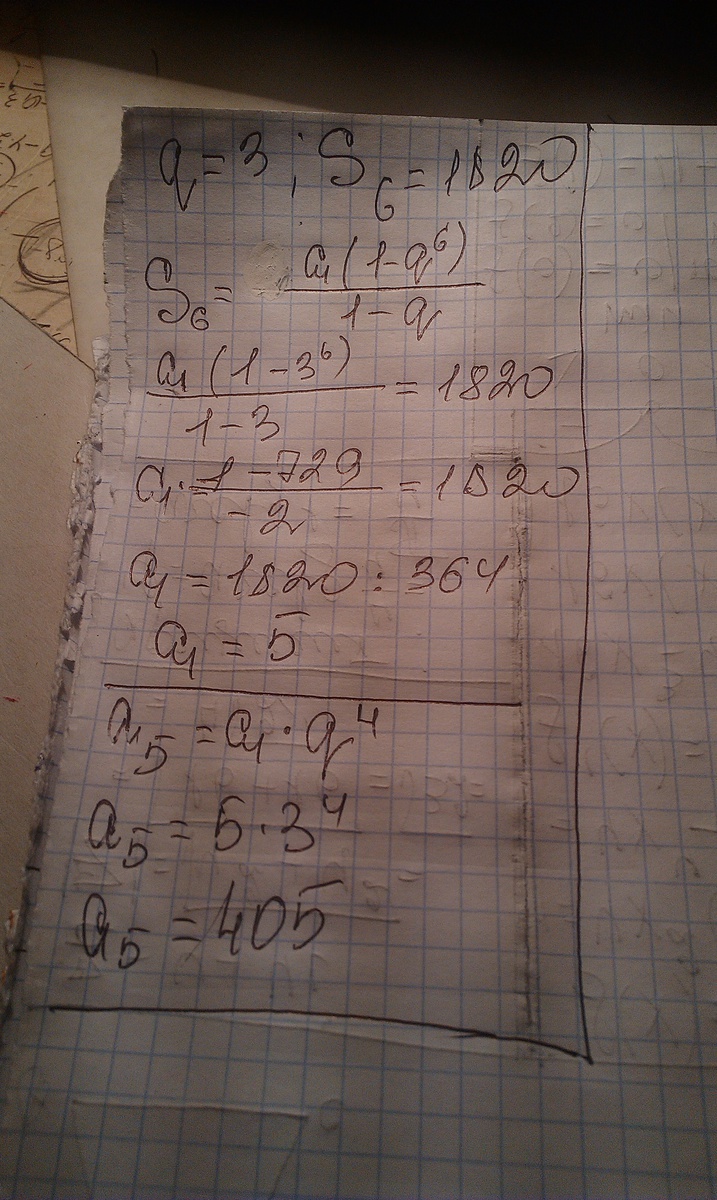 q = 3 ; S₆ = 1820
S₆ = a₁(1-q⁶) / 1-q
a₁(1-3⁶) / 1-3 = 1820
a₁ · 1-729 / -2 = 1820
a₁ = 1820 : 364
a₁ = 5
a₅ = a₁ · q⁴
a₅ = 5 · 3⁴
a₅ = 405